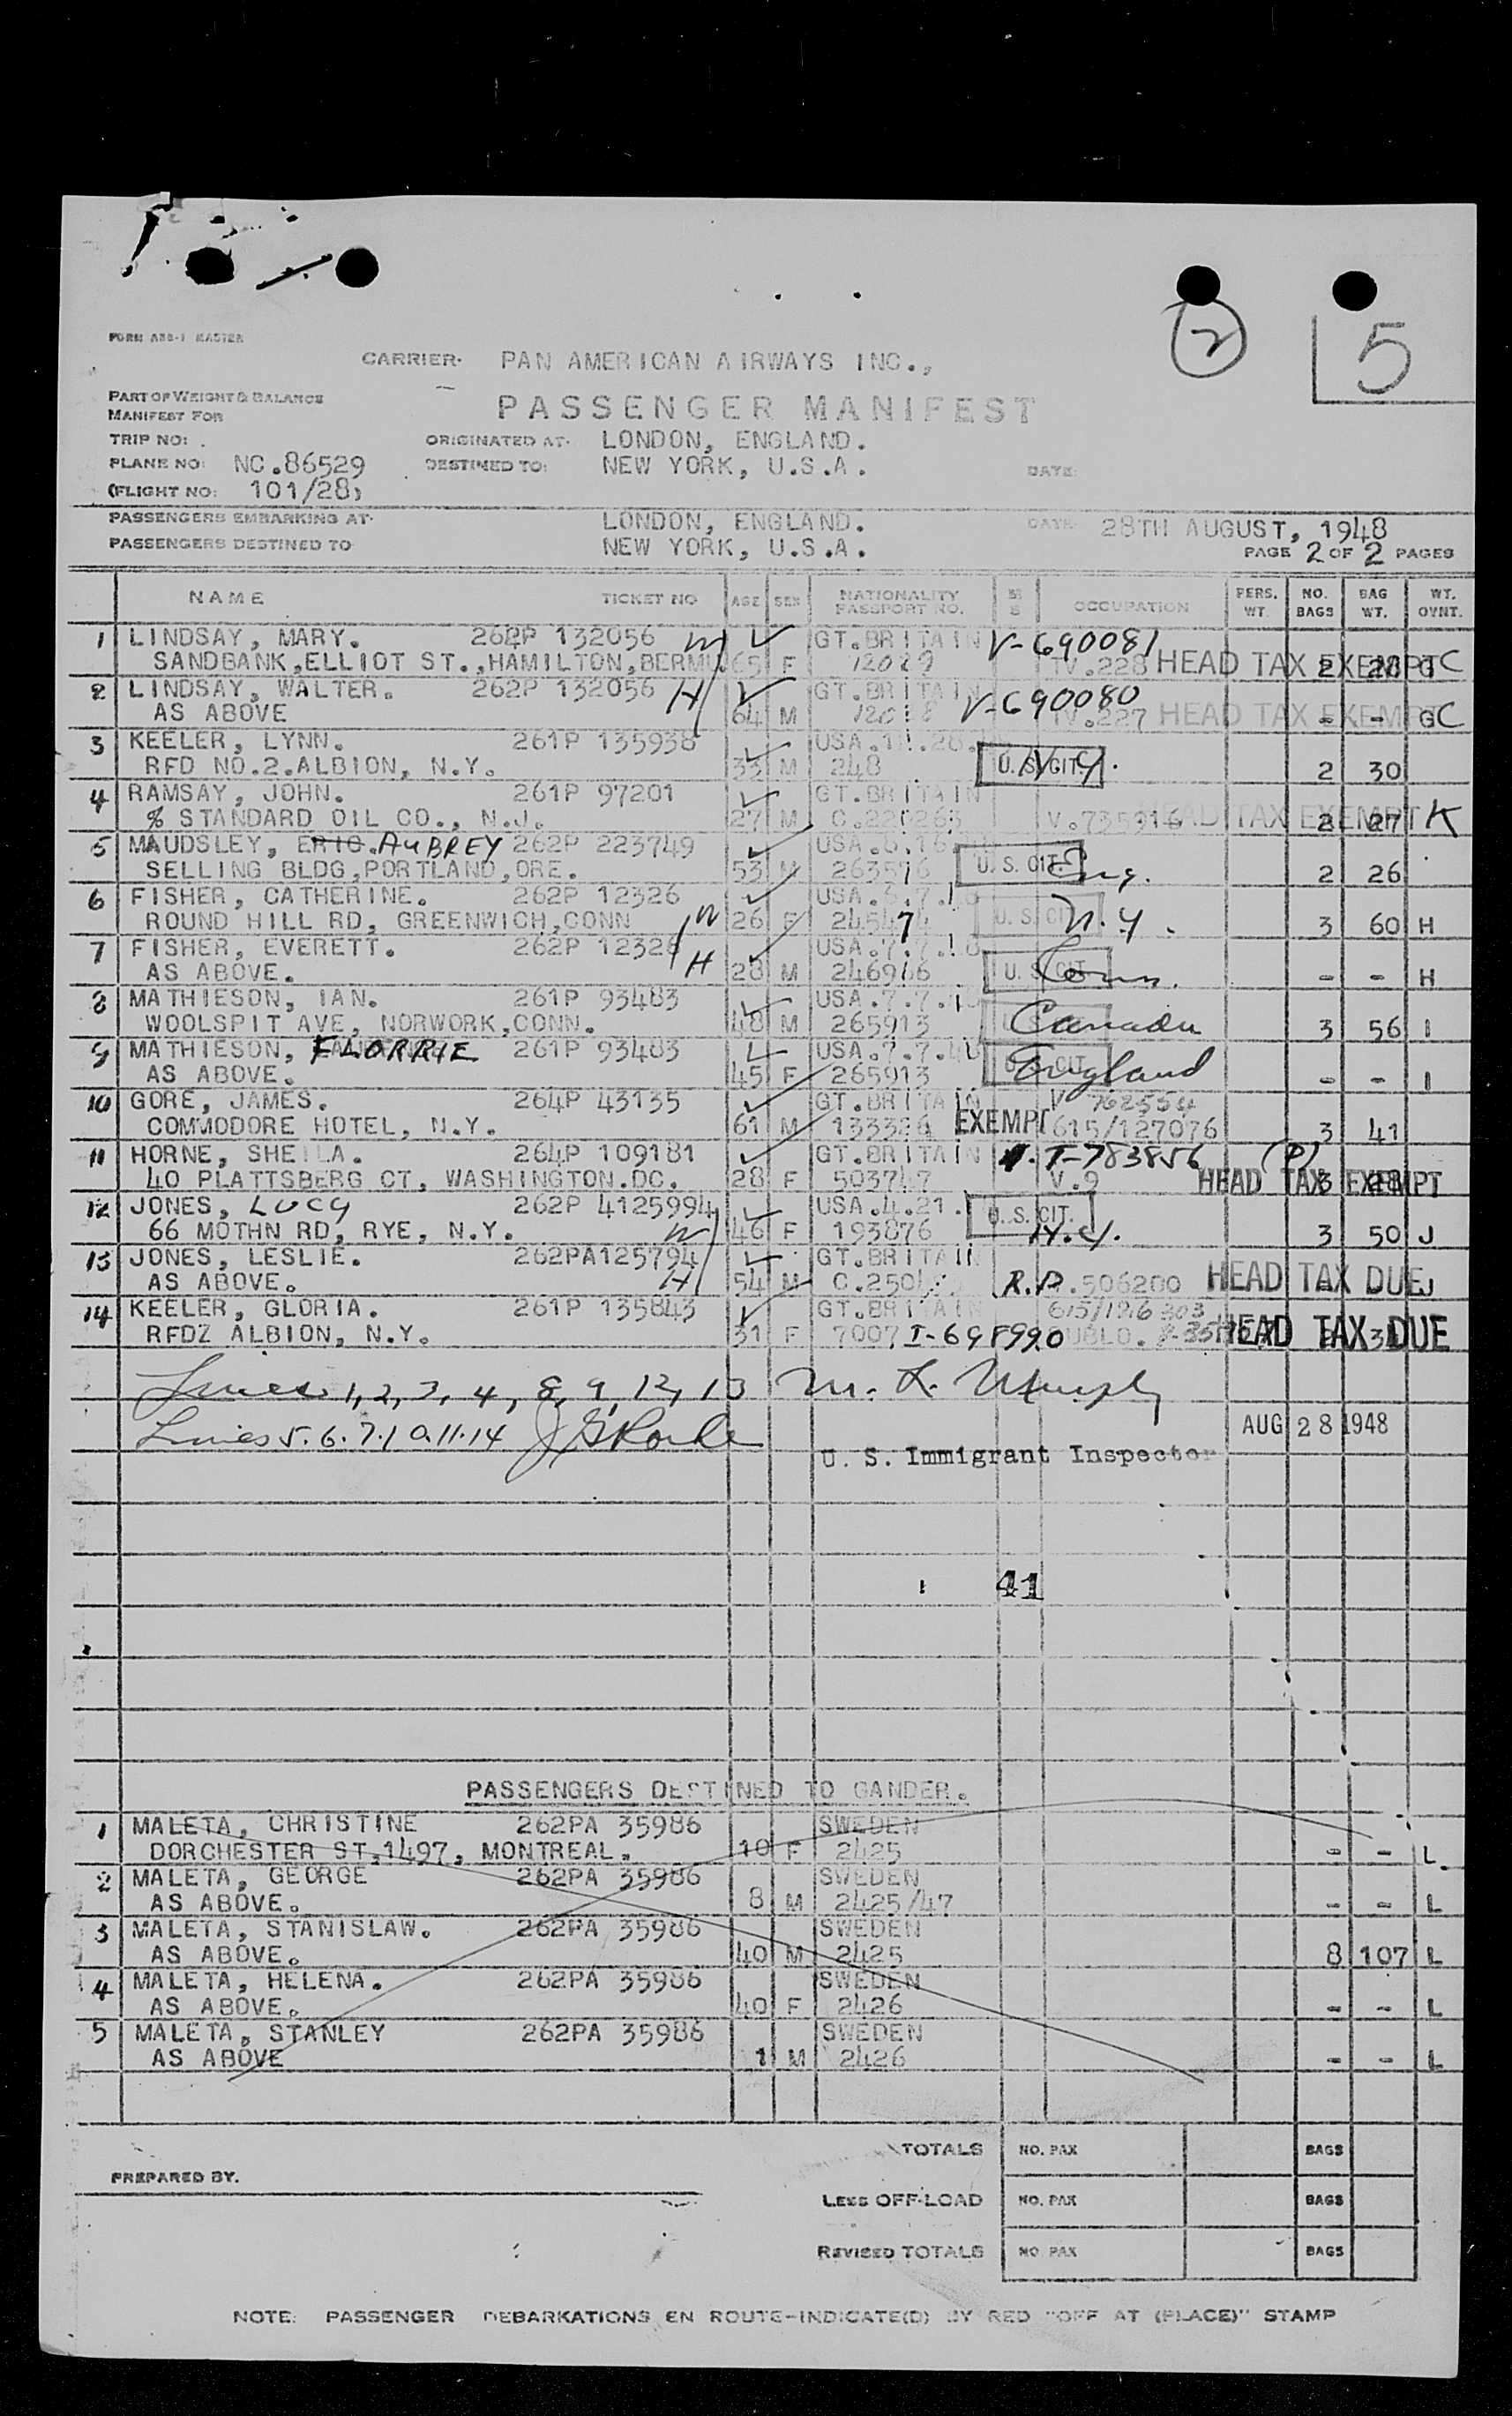 2
5
FORM ABB-1 MASTER
CARRIER. PAN AMERICAN AIRWAYS INC.,
PART OF WEIGHT & BALANCE
MANIFEST FOR
PASSENGER MANIFEST
TRIP NO: ORIGINATED AT. LONDON, ENGLAND.
PLANE NO: NC.86529 DESTINED TO: NEW YORK, U.S.A. DATE:
(FLIGHT NO: 101/28)
PASSENGERS EMBARKING AT. LONDON, ENGLAND. DATE: 28TH AUGUST, 1948
PASSENGERS DESTINED TO NEW YORK, U.S.A. PAGE 2 OF 2 PAGES
NAME TICKET NO AGE SEX NATIONALITY PASSPORT NO. OCCUPATION PERS. WT. NO. BAGS BAG WT. WT. OVNT.
1 LINDSAY, MARY. 262P 132056 W GT.BRITAIN V-690081
SANDBANK,ELLIOT ST.,HAMILTON,BERMU 65 F 12029 TV.228 HEAD TAX EXEMPT 2 28 G C
2 LINDSAY, WALTER. 262P 132056 H GT.BRITAIN V-690080
AS ABOVE 64 M TV.227 HEAD TAX EXEMPT - - G C
3 KEELER, LYNN. 261P 135938 USA.
RFD NO.2.ALBION, N.Y. 33 M 248 U.S.CIT. N.Y. 2 30
4 RAMSAY, JOHN. 261P 97201 GT.BRITAIN
% STANDARD OIL CO., N.J. 27 M C.220263 V.735916 HEAD TAX EXEMPT 2 27 K
5 MAUDSLEY, ERIC. AUBREY 262P 223749 USA.
SELLING BLDG,PORTLAND,ORE. 53 M 263576 U. S. CIT. Eng. 2 26
6 FISHER, CATHERINE. 262P 12326 USA.
ROUND HILL RD, GREENWICH,CONN W 26 F U. S. CIT. N.Y. 3 60 H
7 FISHER, EVERETT. 262P 12326 USA.7.7.
AS ABOVE. H 28 M 246966 U. S. CIT. Conn. - - H
8 MATHIESON, IAN. 261P 93483 USA.7.7.48
WOOLSPIT AVE, NORWORK,CONN. 48 M 265913 Canada 3 56 I
9 MATHIESON, FLORRIE 261P 93483 USA.7.7.48
AS ABOVE. 45 F 265913 U.S. CIT. England - - I
10 GORE, JAMES. 264P 43135 GT.BRITAIN V 762554
COMMODORE HOTEL, N.Y. 61 M 133326 EXEMPT 615/127076 3 41
11 HORNE, SHEILA. 264P 109181 GT.BRITAIN T-783856 (P)
40 PLATTSBERG CT, WASHINGTON.DC. 28 F 503747 V.9 HEAD TAX EXEMPT 3 28
12 JONES, LUCY 262P 4125994 USA.4.21.
66 MOTHN RD, RYE, N.Y. W 46 F 193876 U. S. CIT. N.Y. 3 50 J
13 JONES, LESLIE. 262PA125794 GT.BRITAIN
AS ABOVE. H 54 M R.P.506200 HEAD TAX DUE J
14 KEELER, GLORIA. 261P 135843 GT.BRITAIN 615/126303
RFDZ ALBION, N.Y. 31 F 7007 I-698990 HEAD TAX DUE
Lines 1, 2, 3, 4, 8, 9, 12, 13 M. L. Murphy
Lines 5. 6. 7. 10. 11. 14
AUG 28 1948
U. S. Immigrant Inspector
41
PASSENGERS DESTINED TO GANDER.
1 MALETA, CHRISTINE 262PA 35986 SWEDEN
DORCHESTER ST,1497, MONTREAL. 10 F 2425 - - L
2 MALETA, GEORGE 262PA 35986 SWEDEN
AS ABOVE. 8 M 2425/47 - - L
3 MALETA, STANISLAW. 262PA 35986 SWEDEN
AS ABOVE. 40 M 2425 8 107 L
4 MALETA, HELENA. 262PA 35986 SWEDEN
AS ABOVE. 40 F 2426 - - L
5 MALETA, STANLEY 262PA 35986 SWEDEN
AS ABOVE 1 M 2426 - - L
TOTALS NO. PAX BAGS
PREPARED BY.
LESS OFF-LOAD NO. PAX BAGS
REVISED TOTALS NO PAX BAGS
NOTE: PASSENGER DEBARKATIONS EN ROUTE-INDICATE(D) BY RED "OFF AT (PLACE)" STAMP